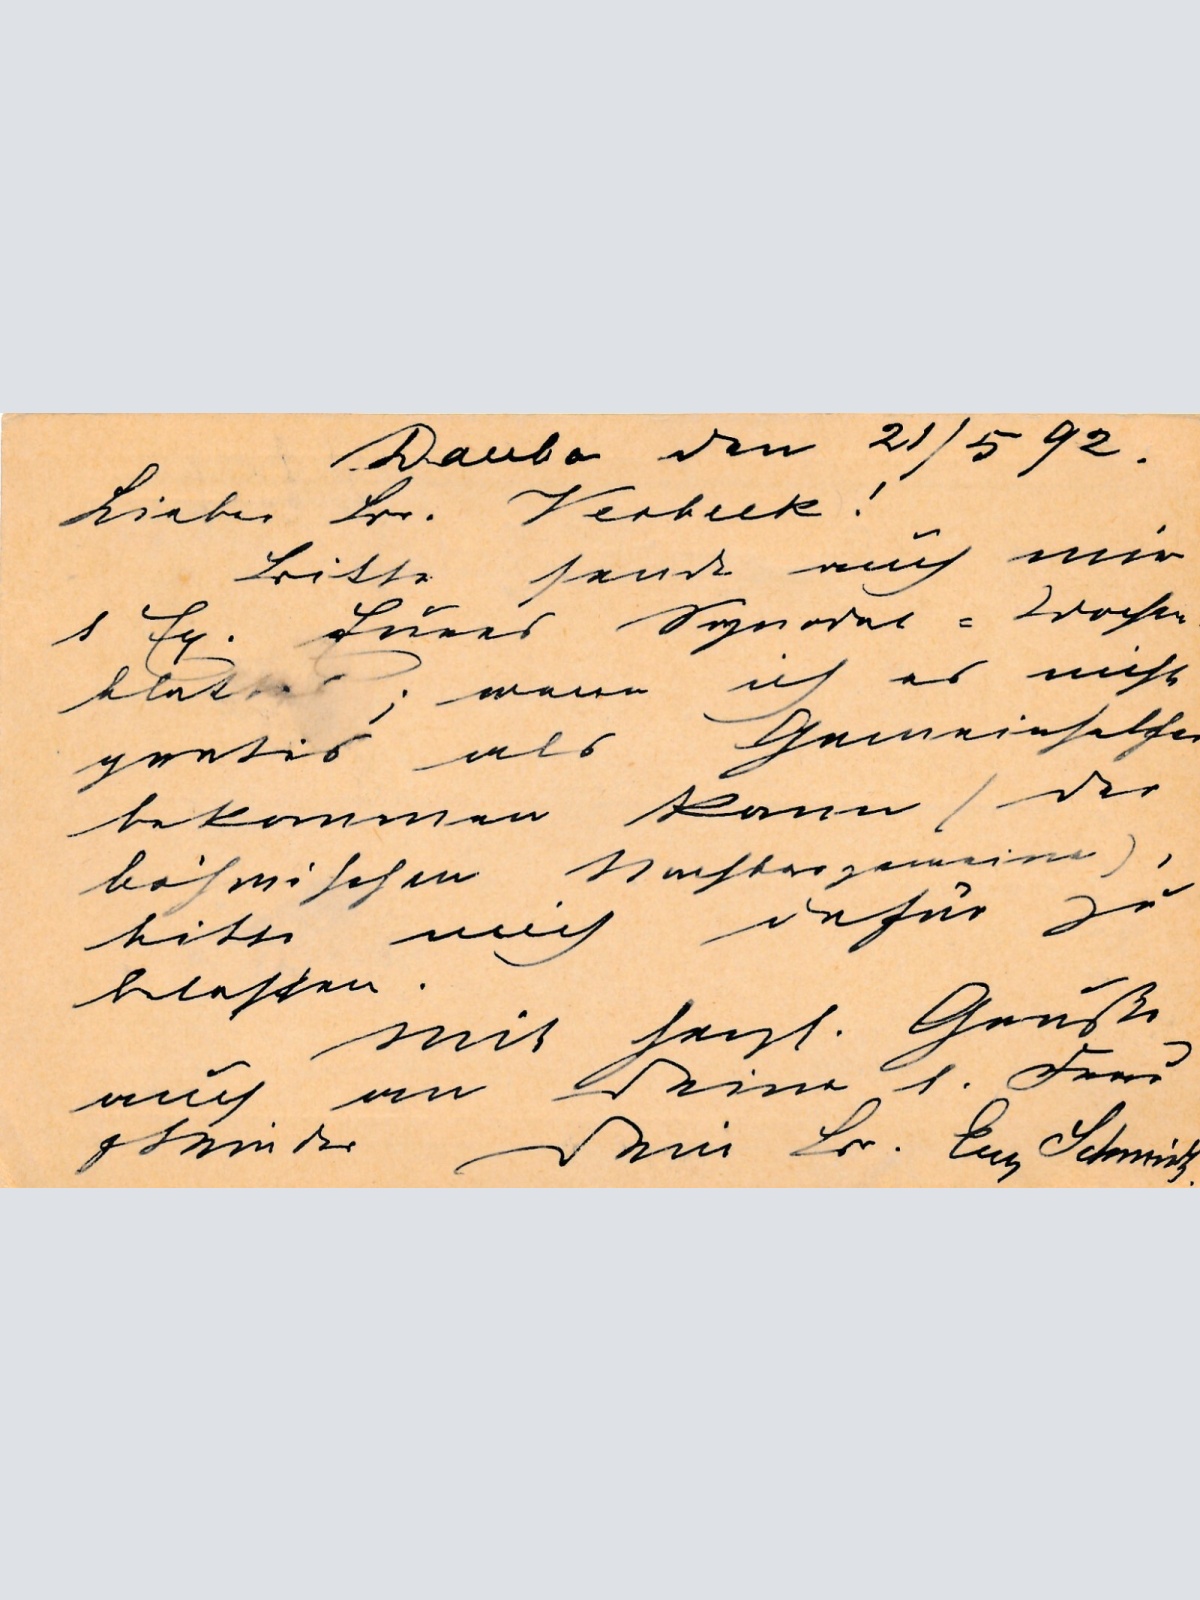 Dauba den 21/5 92.
Lieber Br. Verbeek!
Bitte sende auch mir
1 Ex. Eures Synodal = Wochen
blattes; wenn ich es nicht
gratis als Gemeinhelfer
bekommen kann (der
böhmischen Nachbargemeine),
bitte mich dafür zu
belasten.
Mit herzl. Gruße
auch an Deine l. Frau
& Kinder Dein Br. Eug Schmidt.